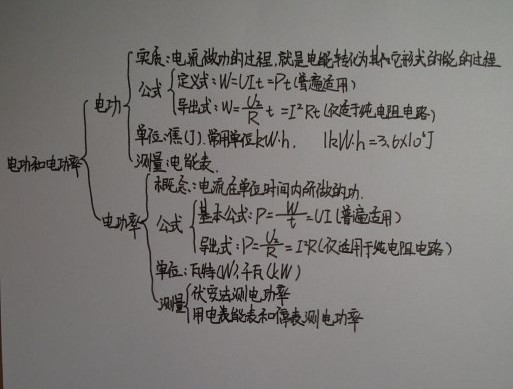 实质:电流做功的过程,就是电能转化为其它形式的能的过程
公式
定义式:W=UIt=Pt(普遍适用)
导出式:W=U²/R t=I²Rt(仅适于纯电阻电路)
电功
单位:焦(J).常用单位kW·h, 1kW·h=3.6×10⁶J
测量:电能表.
电功和电功率
概念:电流在单位时间内所做的功.
公式
基本公式:P=W/t=UI(普遍适用)
导出式:P=U²/R=I²R(仅适用于纯电阻电路)
电功率
单位:瓦特(W),千瓦(kW)
测量
伏安法测电功率
用电能表和停表测电功率